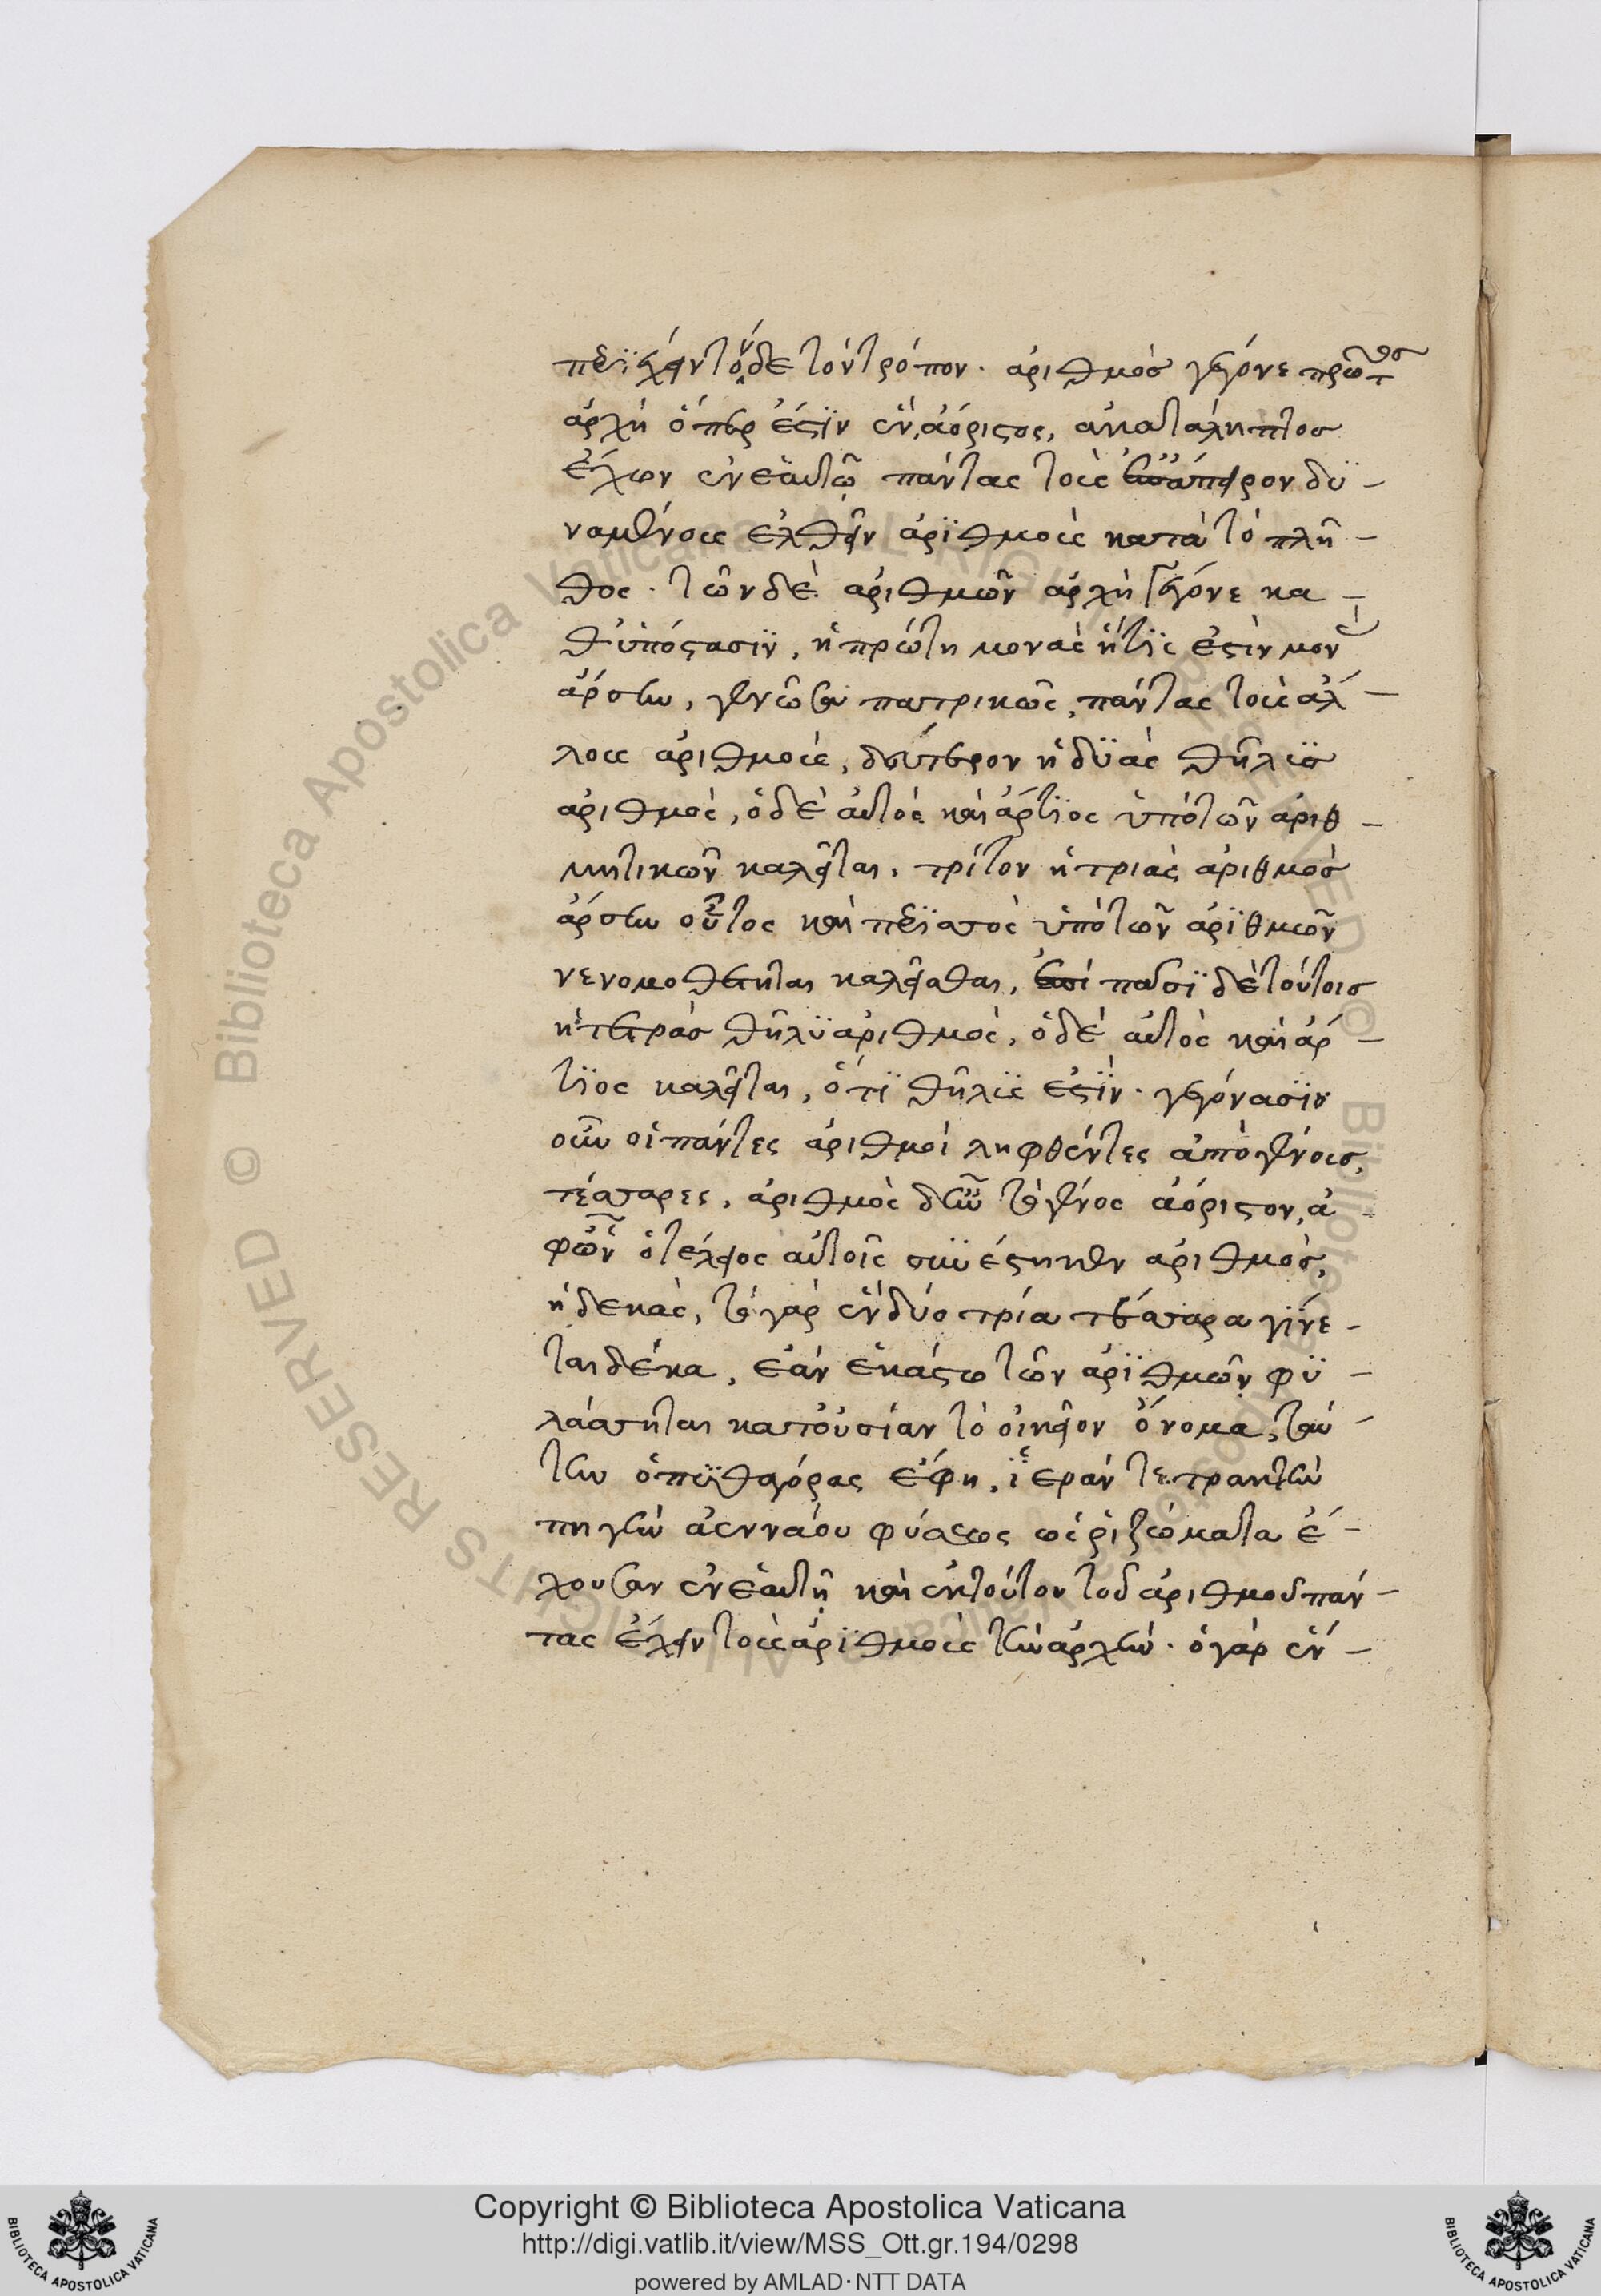 περϊέχειν τόνδε τὸν τρόπον. ἀριθμὸσ γέγονε πρῶτοσ
ἀρχὴ ὅπερ ἐστὶν ἓν, ἀόριστος, ἀκατάληπτοσ
ἔχων ἐν ἑαυτῶ πάντας τοὺς ἐπ' ἄπειρον δυ-
ναμένους ἐλθεῖν ἀρϊθμοὺς κατὰ τὸ πλῆ-
θος. τῶν δὲ ἀριθμῶν ἀρχὴ γέγονε κα-
θ' ὑπόστασϊν, ἡ πρώτη μονὰς ἥτϊς ἐστὶν μον
ἄρσην, γεννῶσα πατρικῶς, πάντας τοὺς ἀλ-
λους ἀριθμοὺς, δεύτερον ἡ δϋὰς θῆλυσ
ἀριθμὸς, ὁ δὲ αὐτὸς καὶ ἄρτϊος ὑπὸ τῶν ἀριθ-
μητικῶν καλεῖται. τρίτον ἡ τριὰς ἀριθμὸσ
ἄρσην οὗτος καὶ πέρϊσσὸς ὑπὸ τῶν ἀρϊθμῶν
νενομοθέτηται καλεῖσθαι, ἐπὶ πᾶσϊ δὲ τούτοισ
ἡ τετρὰσ θῆλϋ ἀριθμὸς, ὁ δὲ αὐτὸς καὶ ἄρ-
τϊος καλεῖται, ὅτϊ θῆλύς ἐστϊν. γεγόνασϊν
οὖν οἱ πάντες ἀριθμοὶ ληφθέντες ἀπὸ γένους,
τέσσαρες, ἀριθμὸς δ' ἦν τὸ γένος ἀόριστον, ἀ
φ' ὧν ὁ τέλειος αὐτοῖς συνέστηκεν ἀριθμὸσ,
ἡ δεκὰς, τὸ γὰρ ἓν δύο τρία τέσσαρα γίνε-
ται δέκα, ἐὰν ἑκάστω τῶν ἀρϊθμῶν φϋ-
λάσσηται κατ' οὐσίαν τὸ οἰκεῖον ὄνομα, ταύ-
την ὁ πϋθαγόρας ἔφη, ἱερὰν τετρακτὺν
πηγὴν ἀεννάου φύσεως ῥιζώματα ἔ-
χουσαν ἐν ἑαυτῆ καὶ ἐκ τούτου τοῦ ἀριθμοῦ πάν-
τας ἔχειν τοὺς ἀρϊθμοὺς τὴν ἀρχὴν. ὁ γὰρ ἕν-
Copyright © Biblioteca Apostolica Vaticana
http://digi.vatlib.it/view/MSS_Ott.gr.194/0298
powered by AMLAD·NTT DATA